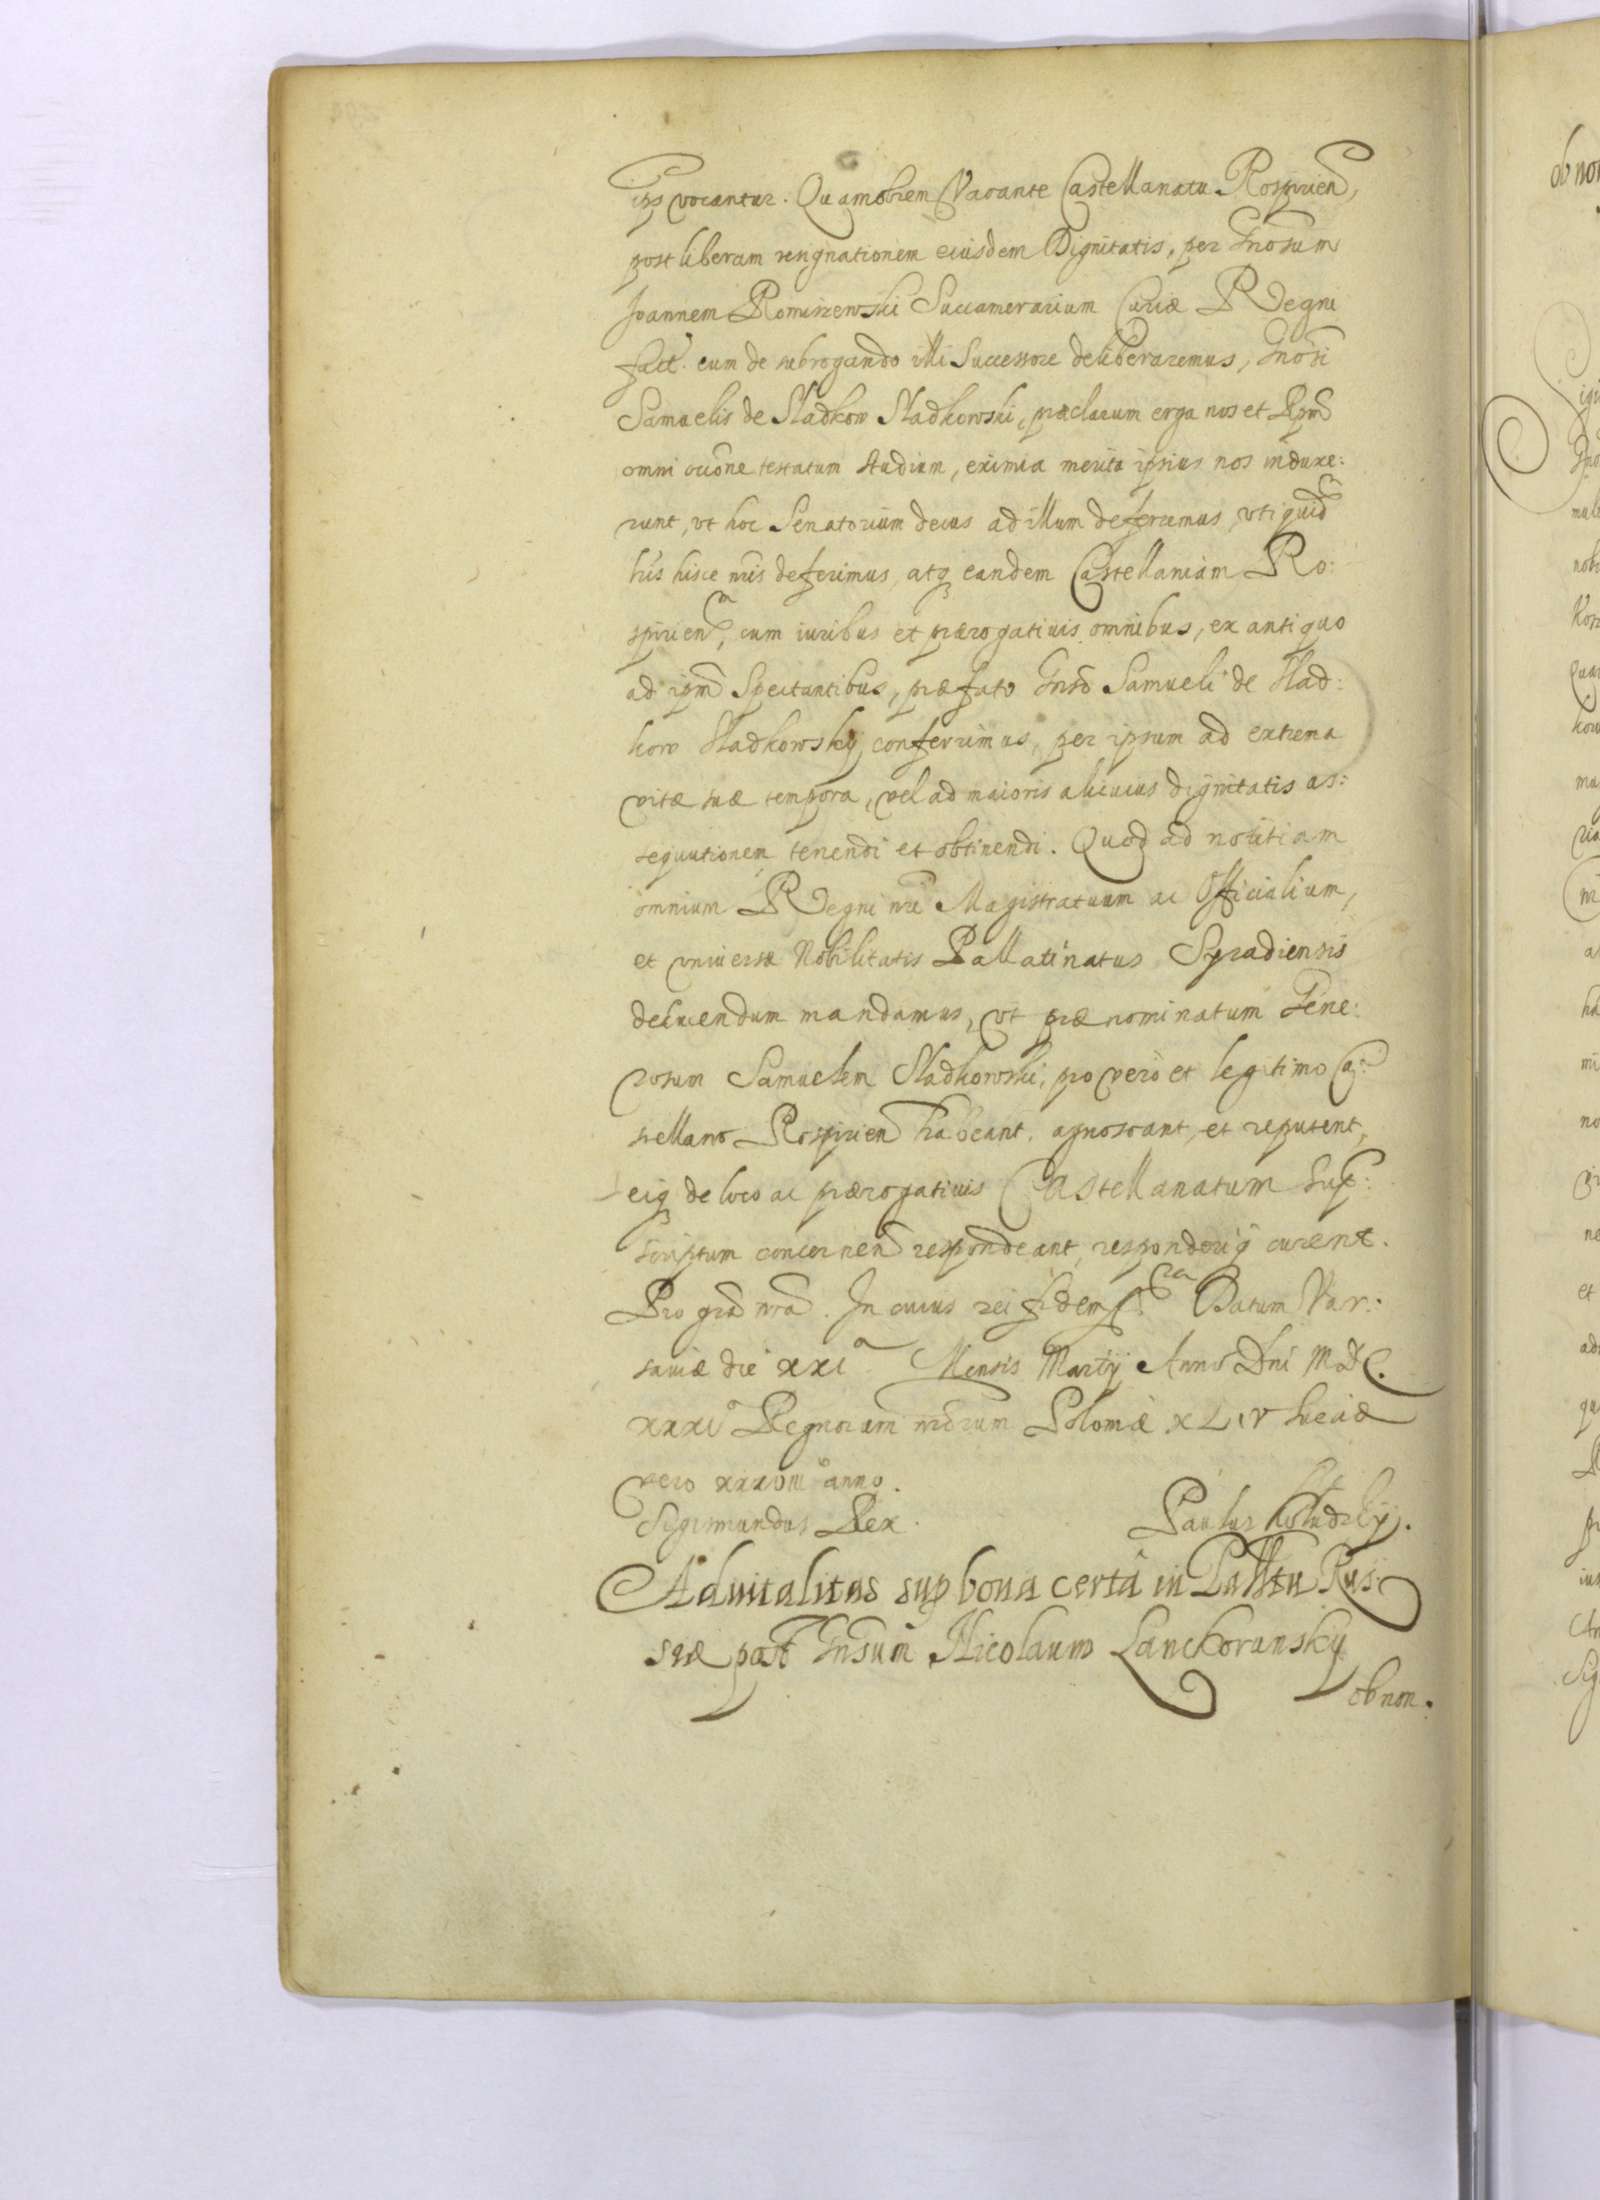 ips vocantur. Quamobrem Vacante Castellanatu Rospirien,
post liberam resignationem eiusdem Dignitatis, per Gnosum
Joannem Romiszewski Succamerarium Curiæ Regni
fact. cum de subrogando illi Successore deliberaremus, Gnosi
Samuelis de Sladkow Sladkowski, præclarum erga nos et Rpm
omni occõne testatum studium, eximia merita ipsius nos induxe:
runt, vt hoc Senatorium decus ad illum deferremus, vti quid
hris hisce nris deferimus, atq eandem Castellaniam Ro:
spirien, cum iuribus et prærogatiuis omnibus, ex antiquo
ad ipm Spectantibus, præfato Gnso Samueli de Slad:
kow Sladkowsky conferrimus, per ipsum ad extrema
vitæ suæ tempora, vel ad maioris alicuius dignitatis as:
sequutionem tenendi et obtinendi. Quod ad notitiam
omnium Regni nri Magistratuum ac Officialium,
et vniuersæ Nobilitatis Pallatinatus Syradiensis
deducendum mandamus, vt prænominatum Gene:
rosum Samuelem Sladkowski, pro vero et legitimo Ca:
stellano Rospirien habeant, agnoscant, et reputent,
eiq de loco ac prærogatiuis Castellanatum sup:
scriptum concernen respondeant, responderiq curent.
Pro gra nra. In cuius rei fidem Datum Var:
sauiæ die XXI a Mensis Martij Anno Dni MDC.
XXXI o Regnorum nrorum Poloniæ XLIV Sueciæ
vero XXXVIII anno.
Sigismundus Rex. Paulus Koludzky.
Aduitalitas sup bona certa in Pallttu Rus:
siæ post Gnsum Nicolaum Lanckoransky
obnon.